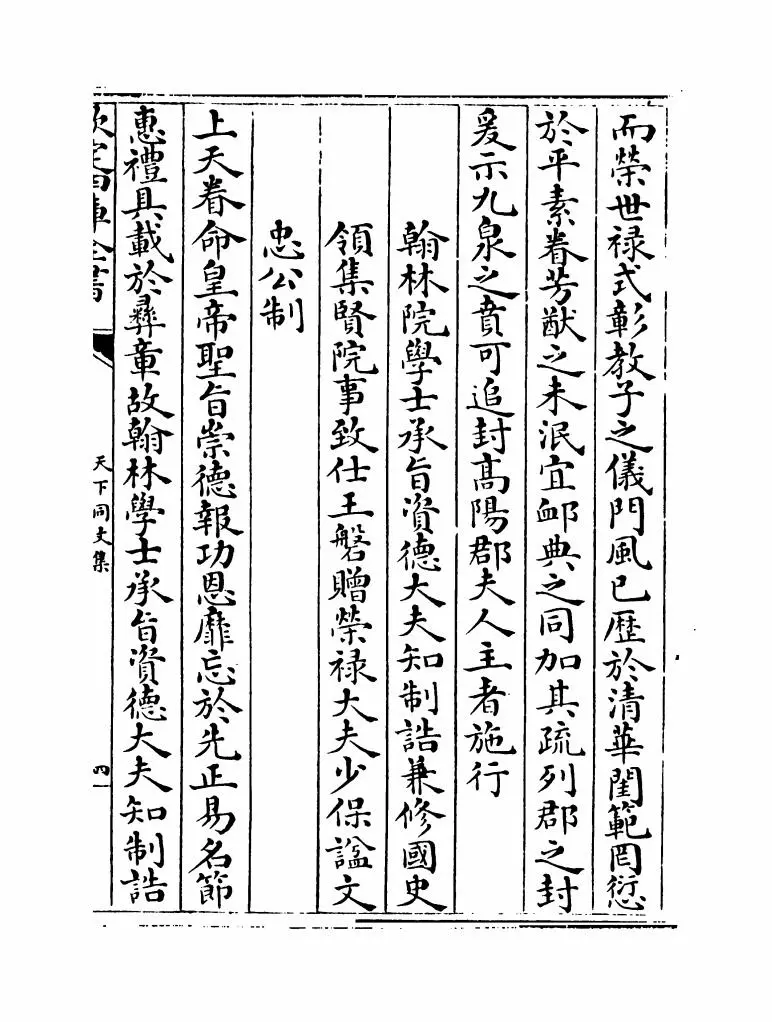 而榮世禄式彰教子之儀門風已歷於清華閨範罔愆
於平素眷芳猷之未泯宜䘏典之同加其疏列郡之封
爰示九泉之賁可追封髙陽郡夫人主者施行
翰林院學士承旨資德大夫知制誥兼修國史
領集賢院事致仕王磐贈榮禄大夫少保諡文
忠公制
上天眷命皇帝聖旨崇德報功恩靡忘於先正易名節
惠禮具載於彛章故翰林學士承旨資德大夫知制誥
欽定四庫全書
天下同文集
四